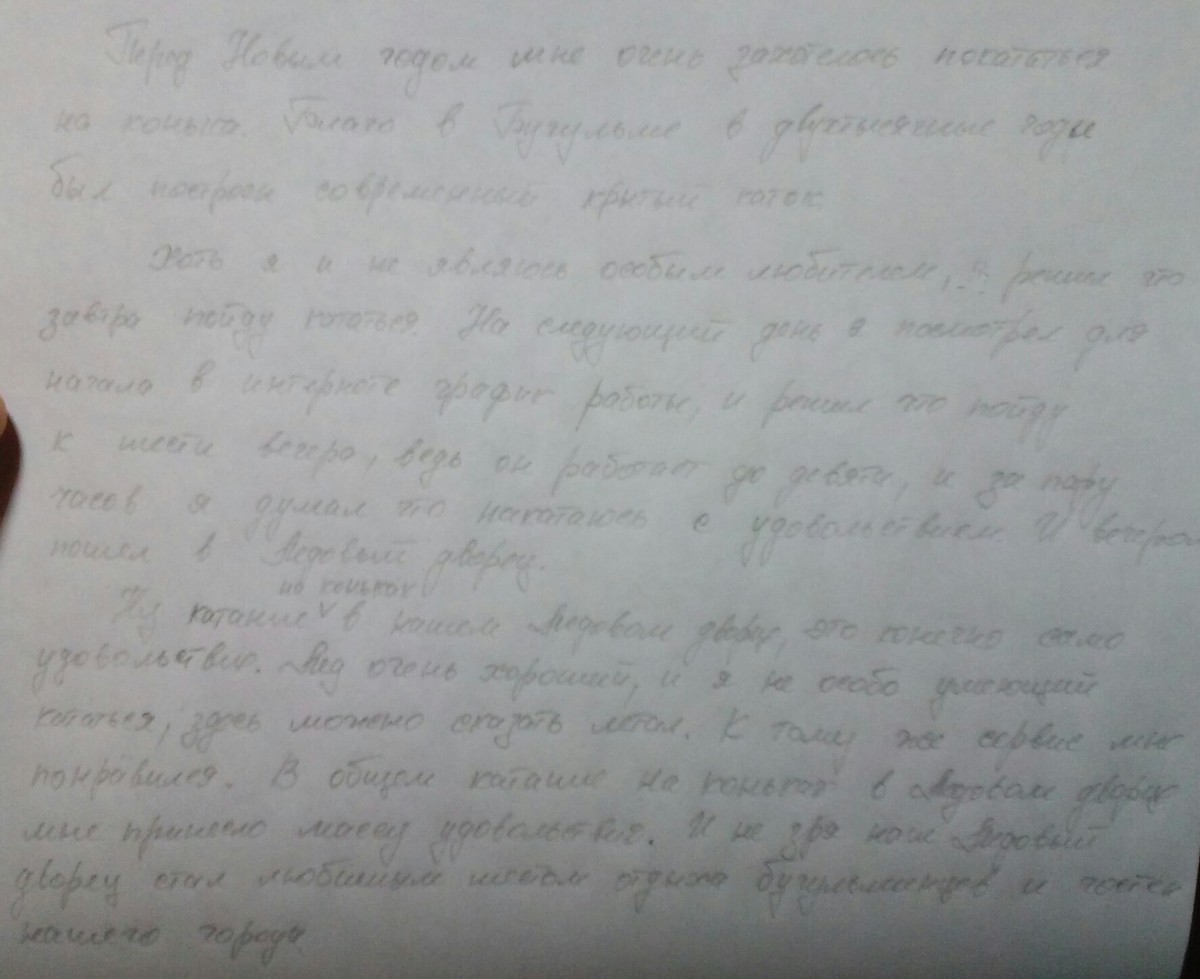 Перед Новым годом мне очень захотелось покататься
на коньках. Благо в Бугульме в двухтысячные годы
был построен современный крытый каток.
Хоть я и не являюсь особым любителем, я решил что
завтра пойду кататься. На следующий день я посмотрел для
начала в интернете график работы, и решил что пойду
к шести вечера, ведь он работает до девяти, и за пару
часов я думал что накатаюсь с удовольствием. И вечером
пошел в Ледовый дворец.
на коньках
Ну катание в нашем Ледовом дворце, это конечно само
удовольствие. Лед очень хороший, и я не особо умеющий
кататься, здесь можно сказать летал. К тому же сервис мне
понравился. В общем катание на коньках в Ледовом дворце
мне принесло массу удовольствия. И не зря наш Ледовый
дворец стал любимым местом отдыха бугульминцев и гостей
нашего города.